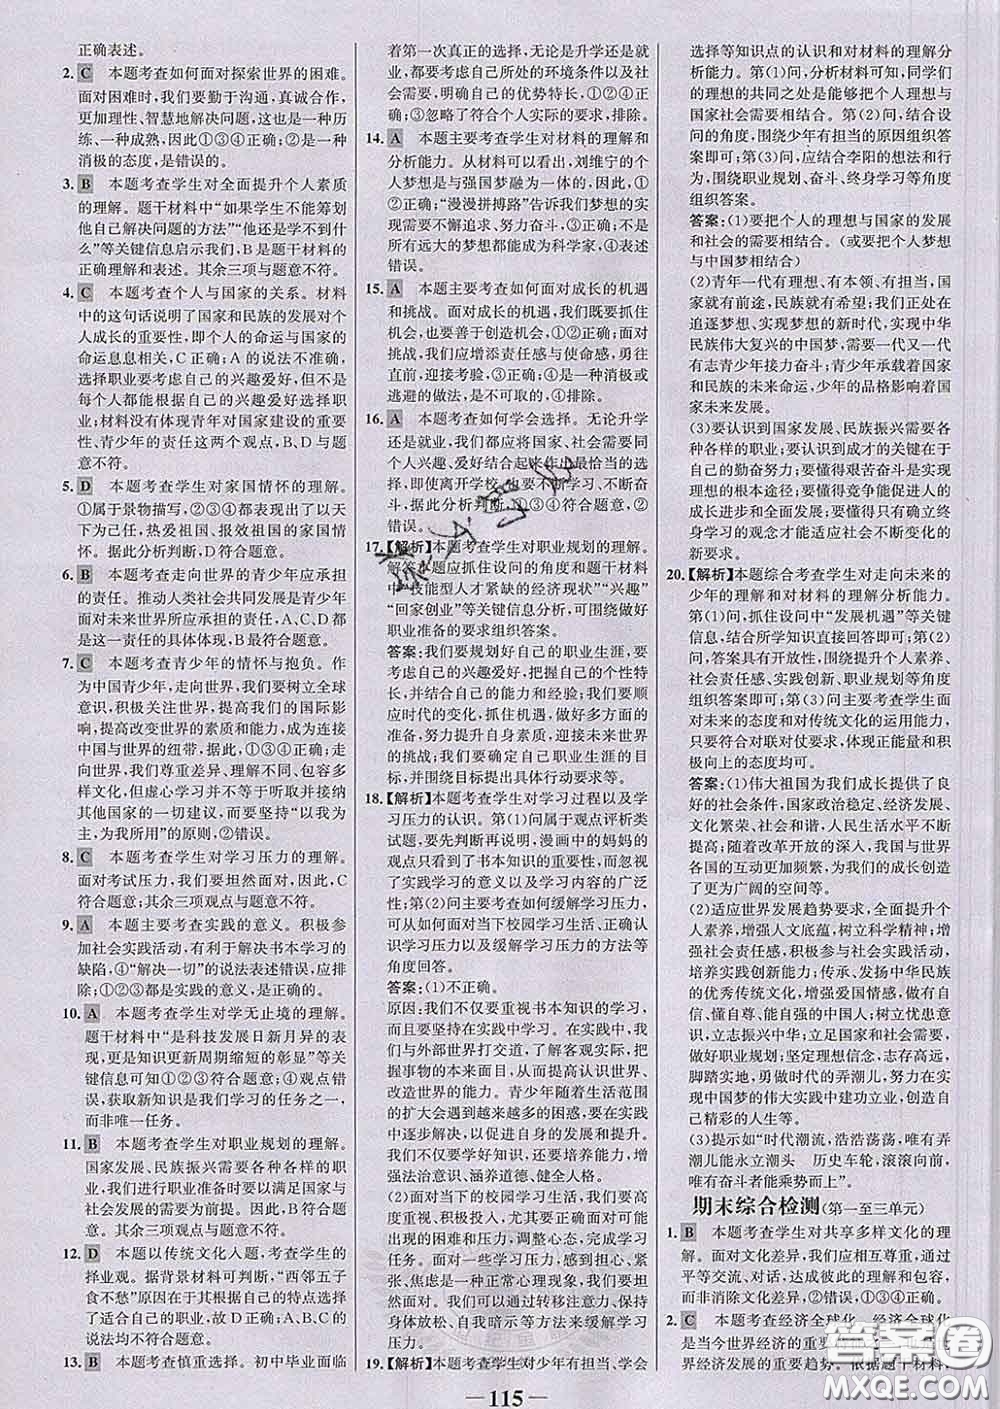 正确表述。
2. C 本题考查如何面对探索世界的困难。
面对困难时,我们要勤于沟通,真诚合作,
更加理性、智慧地解决问题,这也是一种历
练、一种成熟,因此①③④正确;②是一种
消极的态度,是错误的。
3. B 本题考查学生对全面提升个人素质
的理解。题干材料中“如果学生不能筹划
他自己解决问题的方法”“他还是学不到什
么”等关键信息启示我们,B是题干材料的
正确理解和表述。其余三项与题意不符。
4. C 本题考查个人与国家的关系。材料
中的这句话说明了国家和民族的发展对个
人成长的重要性,即个人的命运与国家的
命运息息相关,C正确;A的说法不准确,
选择职业要考虑自己的兴趣爱好,但不是
每个人都能根据自己的兴趣爱好选择到职
业;材料没有体现青年对国家建设的重要
性、青少年的责任这两个观点,B、D与题
意不符。
5. D 本题考查学生对家国情怀的理解。
①属于景物描写,②③④都表现出了以天
下为己任,热爱祖国、报效祖国的家国情
怀。据此分析判断,D符合题意。
6. B 本题考查走向世界的青少年应承担
的责任。推动人类社会共同发展是青少年
面对未来世界所应承担的责任,A、C、D都
是这一责任的具体体现,B最符合题意。
7. C 本题考查青少年的情怀与抱负。作
为中国青少年,走向世界,我们要树立全球
意识,积极关注世界,提高我们的国际影
响,提高改变世界的素质和能力,成为连接
中国与世界的纽带。据此,①③④正确;走
向世界,我们尊重差异、理解不同、包容多
样文化,但虚心学习并不等于听取并接纳
其他国家的一切建议,而要坚持“以我为
主,为我所用”的原则,②错误。
8. C 本题考查学生对学习压力的理解。
面对考试压力,我们要坦然面对,因此,C
符合题意;其余三项观点与题意不符。
9. A 本题主要考查实践的意义。积极参
加社会实践活动,有利于解决书本学习的
缺陷,④“解决一切”的说法表述错误,应排
除;①②③都是实践的意义,是正确的。
10. A 本题考查学生对学无止境的理解。
题干材料中“是科技发展日新月异的表
现,更是知识更新周期缩短的彰显”等关
键信息可知①②③符合题意;④观点错
误,获取新知识是我们学习的任务之一,
而非唯一任务。
11. B 本题考查学生对职业规划的理解。
国家发展、民族振兴需要各种各样的职
业,我们进行职业准备时要以满足国家与
社会的需要为前提。因此,B符合题
意。其余三项观点与题意不符。
12. D 本题以传统文化入题,考查学生的
择业观。据背景材料可判断,“西邻五子
食不愁”原因在于根据自己的特点选择了
适合自己的职业,故D正确;A、B、C的
说法均不符合题意。
13. B 本题考查慎重选择。初中毕业面临
着第一次真正的选择,无论是升学还是就
业,都要考虑自己所处的环境条件以及社
会需要,明确自己的优势特长,①②④正
确;③忽略了符合个人实际的要求,排除。
14. A 本题主要考查学生对材料的理解和
分析能力。从材料可以看出,刘维宁的个
人梦想是与强国梦融为一体的,因此,①
②正确;“漫漫拼搏路”告诉我们实现梦想
需要不懈追求、努力奋斗,③正确;不是
所有远大的梦想都能成为科学家,④表述
错误。
15. A 本题主要考查如何面对成长的机遇
和挑战。面对成长的机遇,我们既要抓住
机会,也要善于创造机会,①②正确;面对
挑战,我们应增添责任感与使命感,勇往
直前,迎接考验,③正确;不是一种消极或
逃避的做法,是不可取的,④排除。
16. A 本题考查如何学会选择。无论升学
还是就业,我们都应将国家、社会需要同
个人兴趣、爱好结合起来作出最恰当的选
择,即使离开学校,也要不断学习、不断奋
斗,据此分析判断,①③④符合题意,
②错误。
17.【解析】本题考查学生对职业规划的理解。
解答本题应抓住设问的角度和题干材料
中“技能型人才紧缺的经济现状”“兴趣”
“回家创业”等关键信息分析,可围绕做好
职业准备的要求组织答案。
答案:我们要规划好自己的职业生涯,要考
虑自己的兴趣爱好,把握自己的个性特长,
并结合自己的能力和经验;我们要顺
应时代的变化,抓住机遇,做好多方面的
准备,努力提升自身素质,迎接未来世界
的挑战;我们要确定自己职业生涯的目标,
并围绕目标提出具体行动要求等。
18.【解析】本题考查学生对学习过程以及学
习压力的认识。第(1)问属于观点评析类
试题,要先判断再说明,漫画中的妈妈的
观点只看到了书本知识的重要性,而忽视
了实践学习的意义以及学习内容的广泛
性;第(2)问主要考查如何缓解学习压力,
可从如何面对当下校园学习生活、正确认
识学习压力以及缓解学习压力的方法等
角度回答。
答案:(1)不正确。
原因:我们不仅要重视书本知识的学习,
而且要坚持在实践中学习。在实践中,我们
与外部世界打交道,了解客观实际,把
握事物的本来面目,从而提高认识世界、
改造世界的能力。青少年随着生活范围
的扩大会遇到越来越多的挑战,为了更好
地适应社会,促进自身的发展和提高,我
们除了要学习书本知识外,还要培养能力,
增强法治意识、涵养道德、健全人格。
(2)面对当下的校园学习生活,我们要高
度重视、积极投入,尤其要坦然面对可能
出现的困难和压力,调整心态、增强信心,
及时化解。面对一些学习压力,出现担心、紧
张、焦虑是一种正常心理现象,我们要保
持镇定。我们可以通过转移注意力、保持
身体放松、自我暗示等方法来缓解
压力。
19.【解析】本题考查学生对少年有担当、学会
选择等知识点的认识和对材料的理解分
析能力。第(1)问,分析材料可知,同学们
的理想的共同之处是要把个人的理想与
国家和社会需要相结合;第(2)问,应结合
设问的角度,围绕少年有担当的原因组织答
案即可;第(3)问,应结合李阳的想法和行
为,围绕职业规划、奋斗、终身学习等角度
组织答案。
答案:(1)要把个人的理想与国家的发展
和社会的需要相结合。(或要把个人梦想
与中国梦相结合)
(2)青年一代有理想、有本领、有担当,国
家就有前途,民族就有希望;我们正处在
追逐梦想、实现梦想的新时代,实现中华
民族伟大复兴的中国梦,需要一代又一代
有志青年接力奋斗、青少年承载着国家
和民族的未来命运,少年的品格影响着国
家未来发展。
(3)要认识到国家发展、民族振兴需要各
种各样的职业;要认识到成才的关键在于
自己的勤奋努力;要懂得艰苦奋斗是实现
理想的根本途径;要懂得竞争能促进人的
成长进步和全面发展;要懂得只有确立终
身学习的观念才能适应社会不断变化的
新要求。
20.【解析】本题综合考查学生对走向未来的
少年的理解和对材料的理解分析能力。第
(1)问,抓住设问中“发展机遇”等关键
信息,结合所学知识直接回答即可;第(2)
问,答案具有开放性,围绕提升个人素养、
社会责任感、实践创新、职业规划等角度
组织答案即可;第(3)问主要考查学生面
对未来的态度和对传统文化的运用能力,
只要符合对联对仗要求,体现正能量和积
极向上的态度均可。
答案:(1)伟大祖国为我们成长提供了良
好的社会条件,国家政治稳定、经济发展、
文化繁荣、社会和谐,人民生活水平不断
提高;随着改革开放的深入,我国与世界
各国的互动更加频繁,为我们的成长创造
了更为广阔的空间等。
(2)适应世界发展趋势要求,全面提升个
人素养,增强人文底蕴,树立科学精神;增
强社会责任感,积极参与社会实践活动,
培养实践创新能力;传承、发扬中华民族
的优秀传统文化,增强爱国情感,做有自
信、懂自尊、能自强的中国人;树立忧患意
识,立志振兴中华;立足国家和社会需要,
做好职业规划;坚定理想信念,志存高远,
脚踏实地,勇做时代的弄潮儿,努力在实
现中国梦的伟大实践中建功立业,创造自
己精彩的人生等。
(3)提示如“时代潮流,浩浩荡荡,唯有弄
潮儿能永立潮头 历史车轮,滚滚向前,
唯有奋斗者能乘势而上”。
期末综合检测(第一至三单元)
1. B 本题考查学生对共享多样文化的理
解。面对文化差异,我们应相互尊重,通过
平等交流、对话,达成彼此的理解和包容,
而非消除文化差异,②错误,①③④正确。
2. C 本题考查经济全球化。经济全球化
是当今世界经济的重要
界经济发展的重要趋势。依据题干材料,
— 115 —
答案圈
MXQE.COM